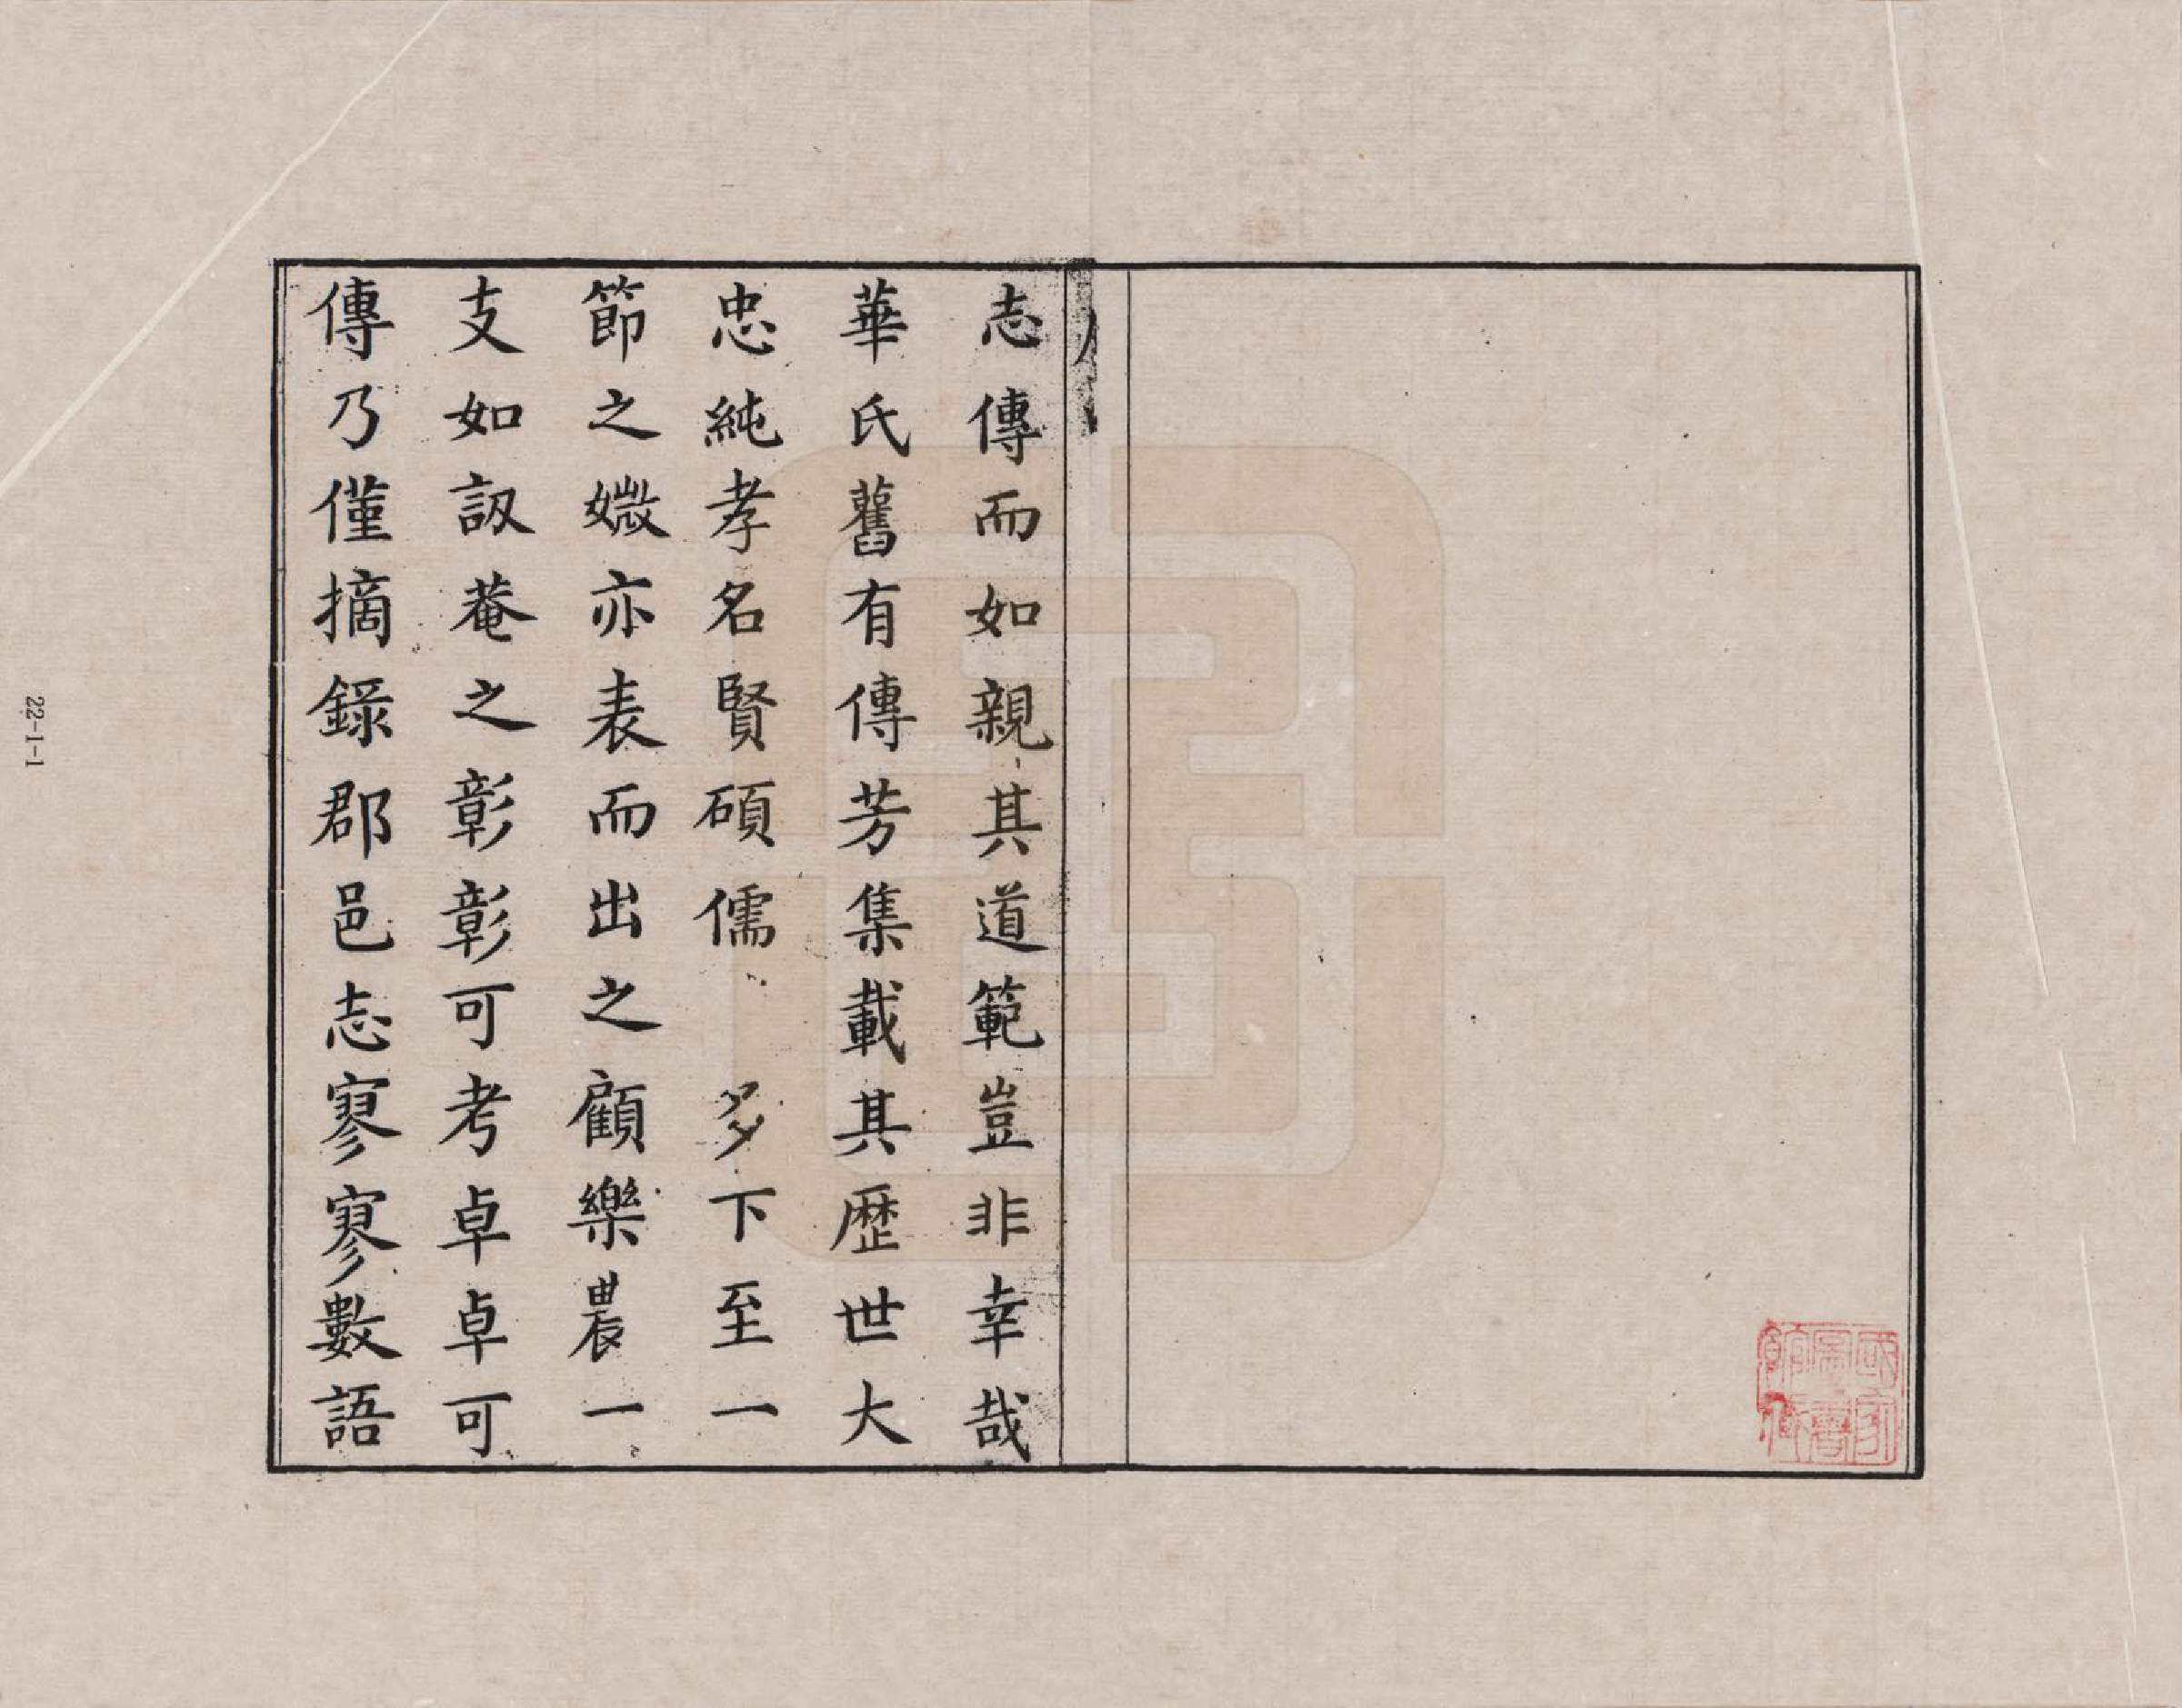 國家
圖書
館藏
志傳而如親其道範豈非幸哉
華氏舊有傳芳集載其歷世大
忠純孝名賢碩儒 多下至一
節之媺亦表而出之顧樂農一
支如訒菴之彰彰可考卓卓可
傳乃僅摘錄郡邑志寥寥數語
22-1-1